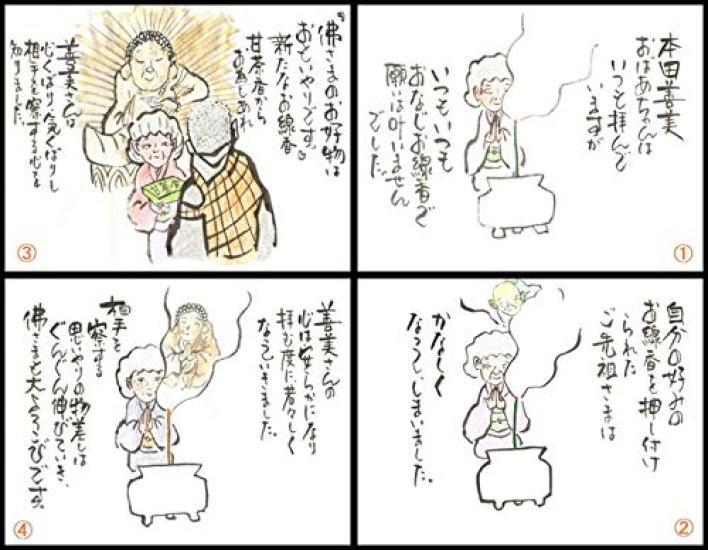 本田善美
おばあちゃんは
いつも拝んで
いますが
いつもいつも
おなじお線香で
願いは叶いません
でした。
①
自分の好みの
お線香を押し付け
られた
ご先祖さまは
かなしく
なってしまいました。
②
『佛さまのお好物は
おもいやりです。』
新たなお線香
甘茶香から
お為しあれ
善美さんは
心くばり気くばりし
相手を察する心を
知りました。
甘茶香
③
善美さんの
心は安らかになり
拝む度に若々しく
なっていきました。
相手を
察する
思いやりの物差しは
ぐんぐん伸びていき、
佛さまも大よろこびです。
④